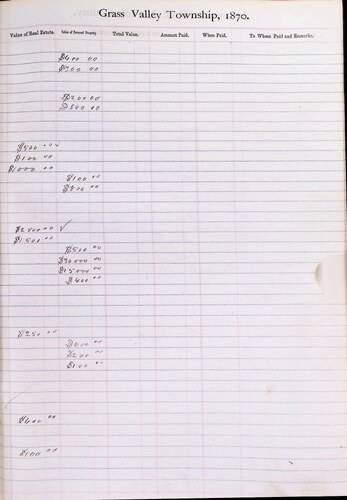 Grass Valley Township, 1870.
Value of Real Estate. Value of Personal Property Total Value. Amount Paid. When Paid. To Whom Paid and Remarks.
$600 00
$300 00
$200 00
$500 00
$500 00
$100 00
$1000 00
$100 00
$2500 00 ✓
$1,500 00
$500 00
$400 00
$250 00
$600 00
$200 00
$100 00
$600 00
$100 00